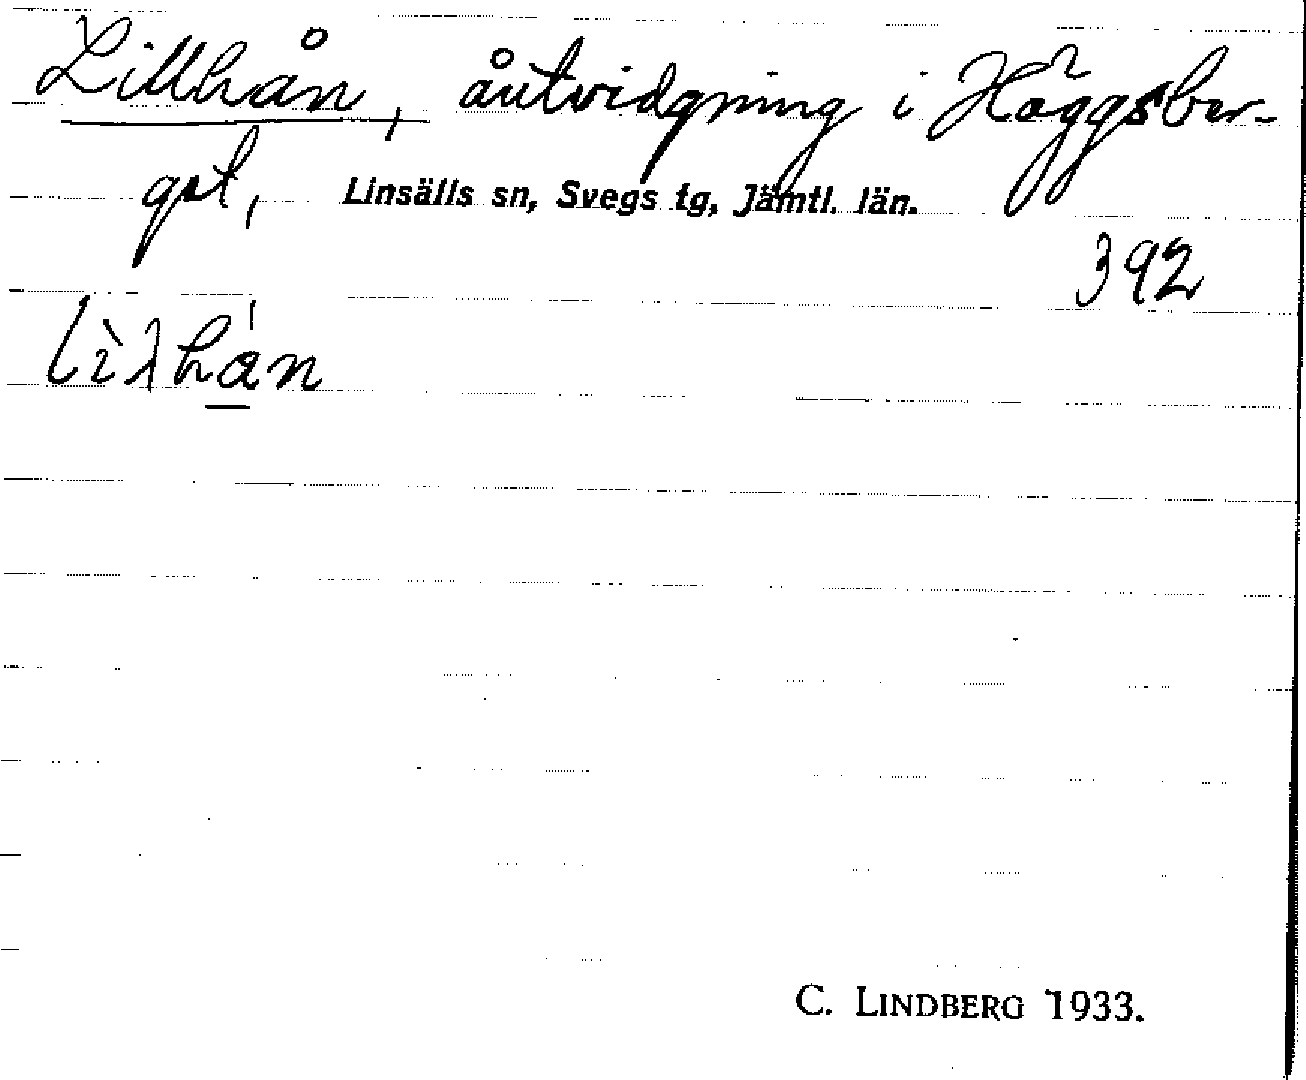 Lillhån, åutvidgning i Häggsber-
gst, Linsälls sn, Svegs tg, Jämtl. län.
392
C. LINDBERG 1933.